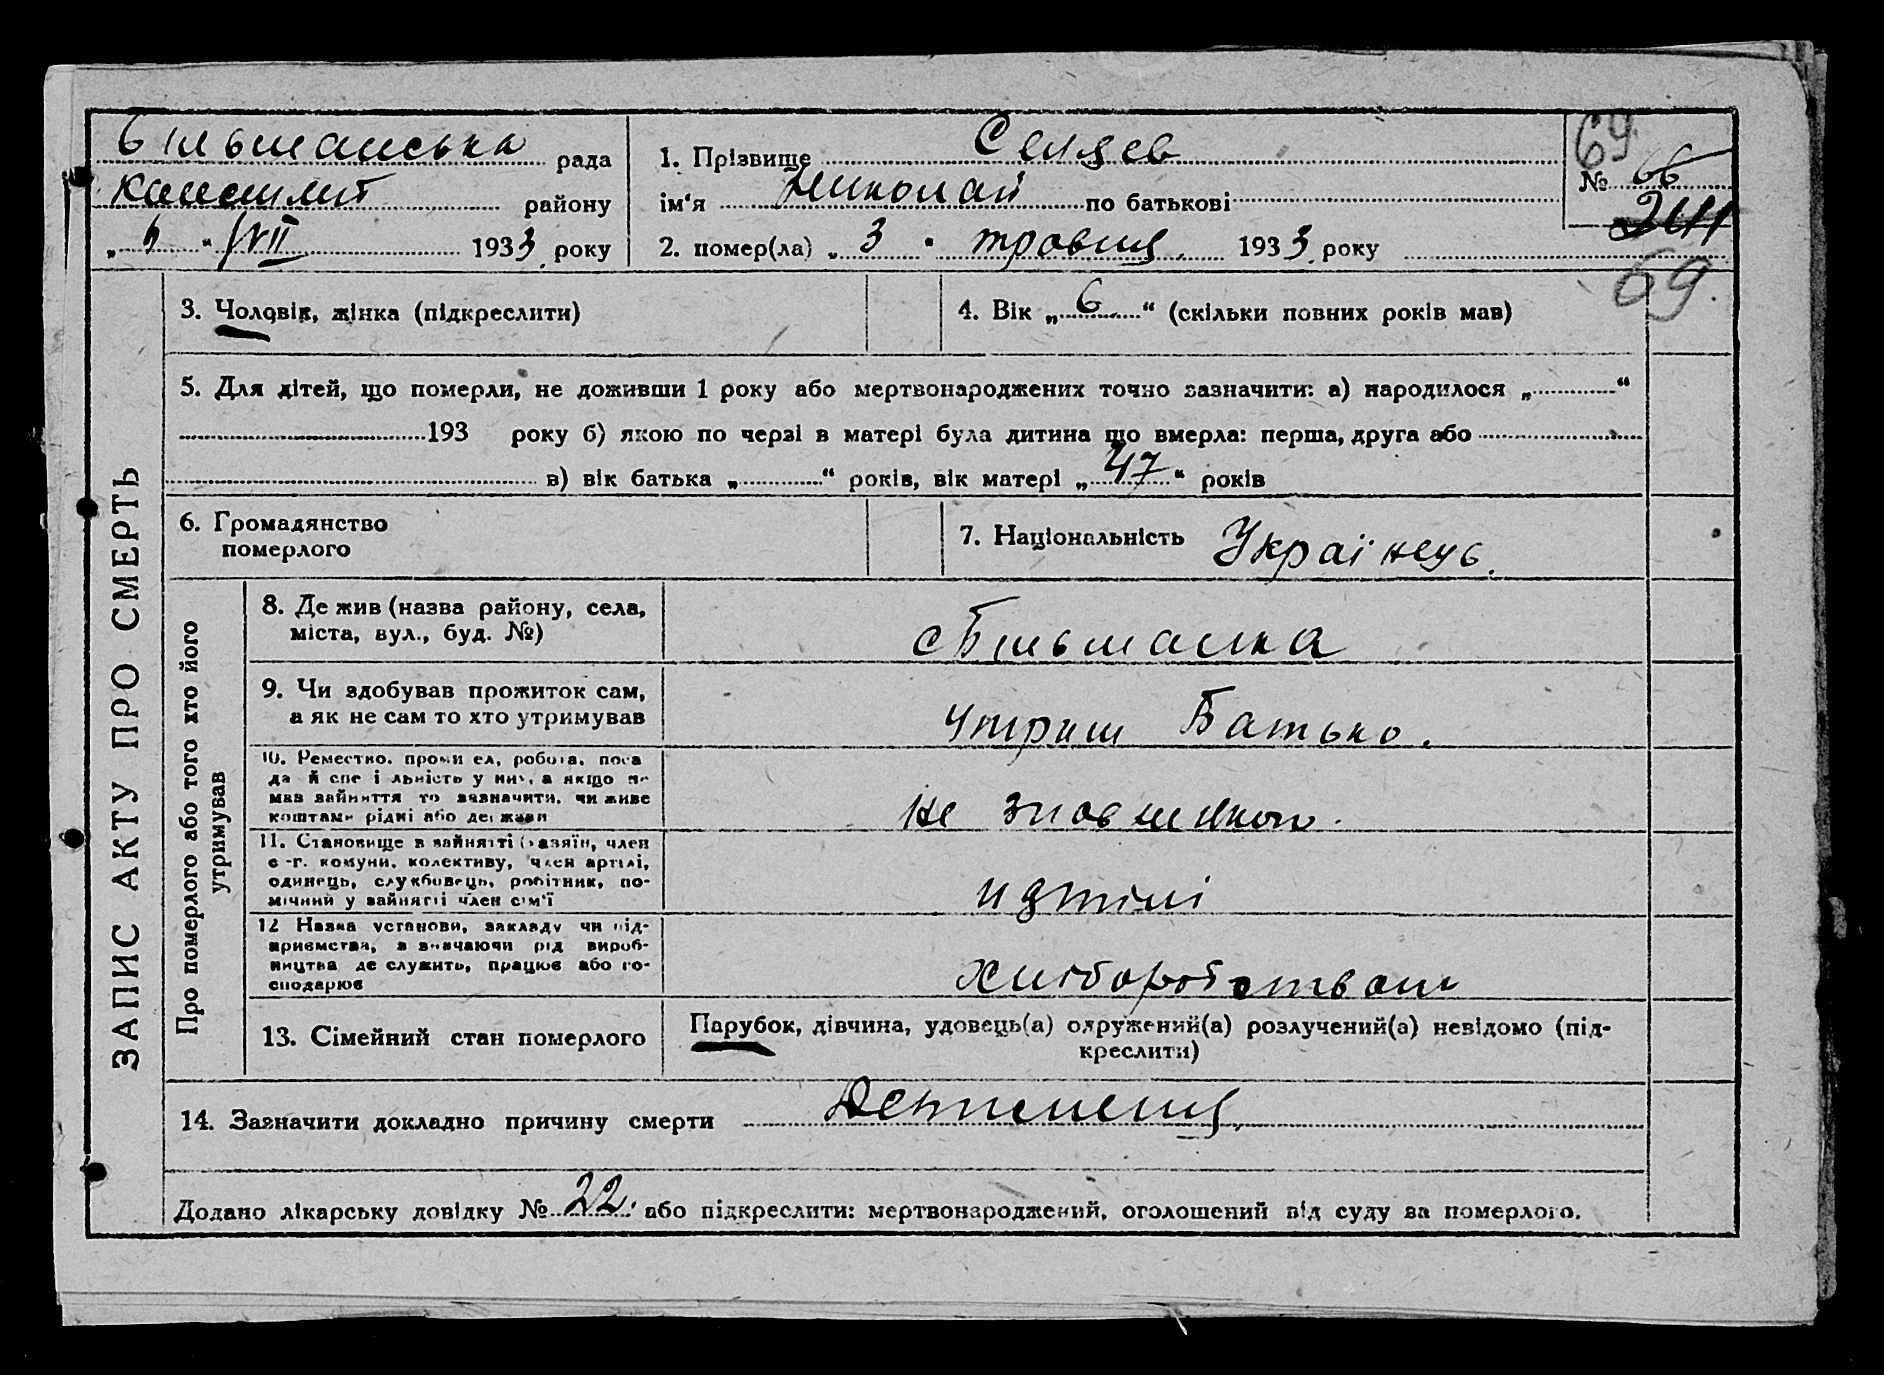 Більшанська рада
району
„ 6 “ VII 1933 року
1. Прізвище
ім'я Николай по батькові
2. помер(ла) „ 3 “ травня 1933 року
69
№ 66
241
69.
ЗАПИС АКТУ ПРО СМЕРТЬ
3. Чоловік, жінка (підкреслити)
4. Вік „ 6 “ (скільки повних років мав)
5. Для дітей, що померли, не доживши 1 року або мертвонароджених точно зазначити: а) народилося „ “
193 року б) якою по черзі в матері була дитина що вмерла: перша, друга або
в) вік батька „ “ років, вік матері „ 47 “ років
6. Громадянство
померлого
7. Національність Українець.
Про померлого або того хто його
утримував
8. Де жив (назва району, села,
міста, вул., буд. №)
с Більшанка
9. Чи здобував прожиток сам,
а як не сам то хто утримував
Утрим Батько.
10. Ремество, промисел, робота, поса
да й спеціальність у них, а якщо не
мав зайняття то зазначити, чи живе
коштами рідні або держави
не
11. Становище в зайнятті (хазяїн, член
с.-г. комуни, колективу, член артілі,
одинець, службовець, робітник, по-
мічний у зайнятті член сім'ї
12 Назва установи, закладу чи під-
приємства, зазначаючи рід вироб-
ництва де служить, працює або го-
сподарює
13. Сімейний стан померлого
Парубок, дівчина, удовець(а) одружений(а) розлучений(а) невідомо (під-
креслити)
14. Зазначити докладно причину смерти
Додано лікарську довідку № 22. або підкреслити: мертвонароджений, оголошений від суду за померлого.